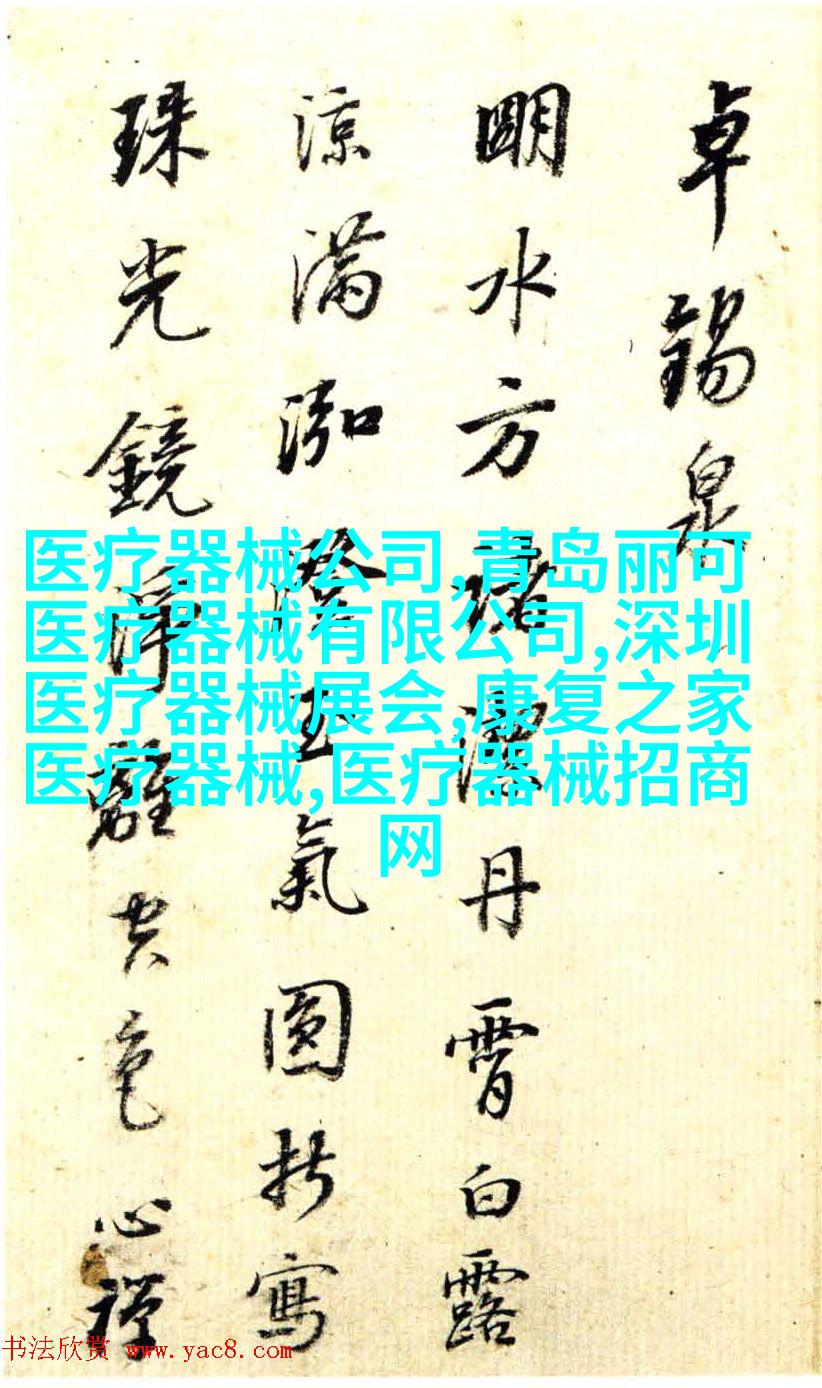 卓錫泉
明水方諸潔丹霄白露
涼滿泓澄玉氣圓折寫
珠光鏡淨離空色心禪
医疗器械公司,青岛丽可
医疗器械有限公司,深圳
医疗器械展会,康复之家
医疗器械,医疗器械招商
网
书法欣赏 www.yac8.com